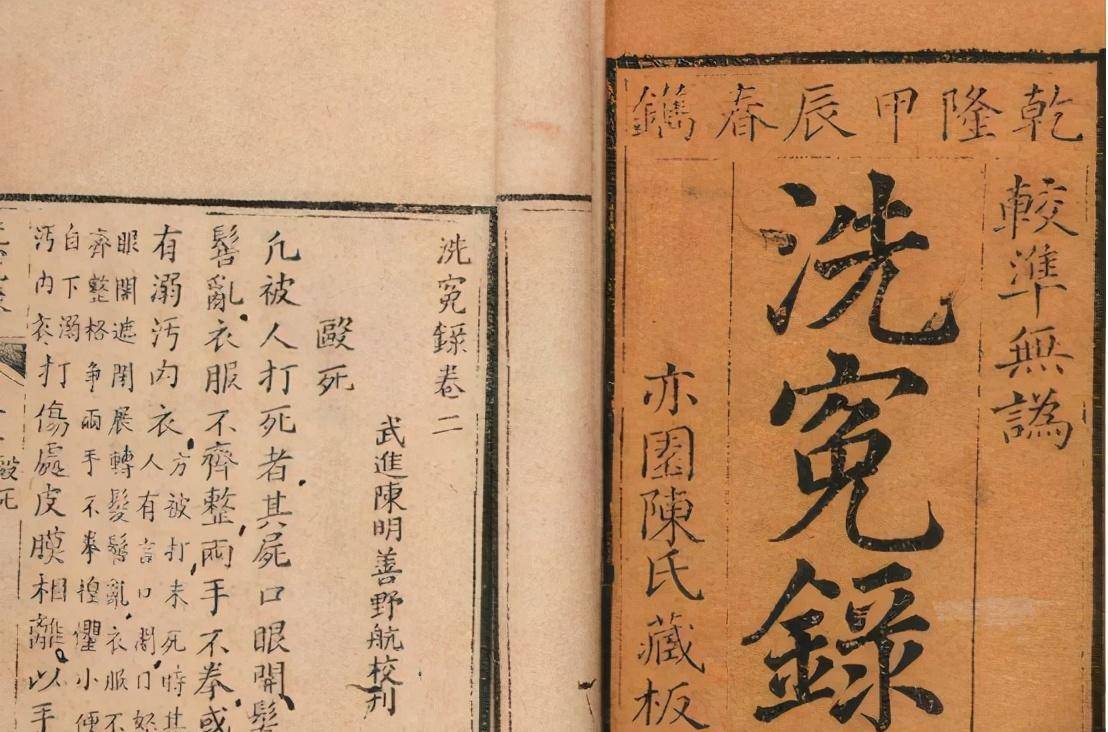 乾隆甲辰春鐫
較準無譌
洗冤錄
亦園陳氏藏板
洗冤錄卷二
武進陳明善野航校刊
毆死
凡被人打死者其屍口眼開髮
髻亂衣服不齊整兩手不拳或
有溺污內衣
方被打未死時其
人有言口開口怒
眼開遮閉展轉髮髻亂衣服不
齊整格爭兩手不拳徨懼小便
自下溺
污內衣
打傷處皮膜相離以手